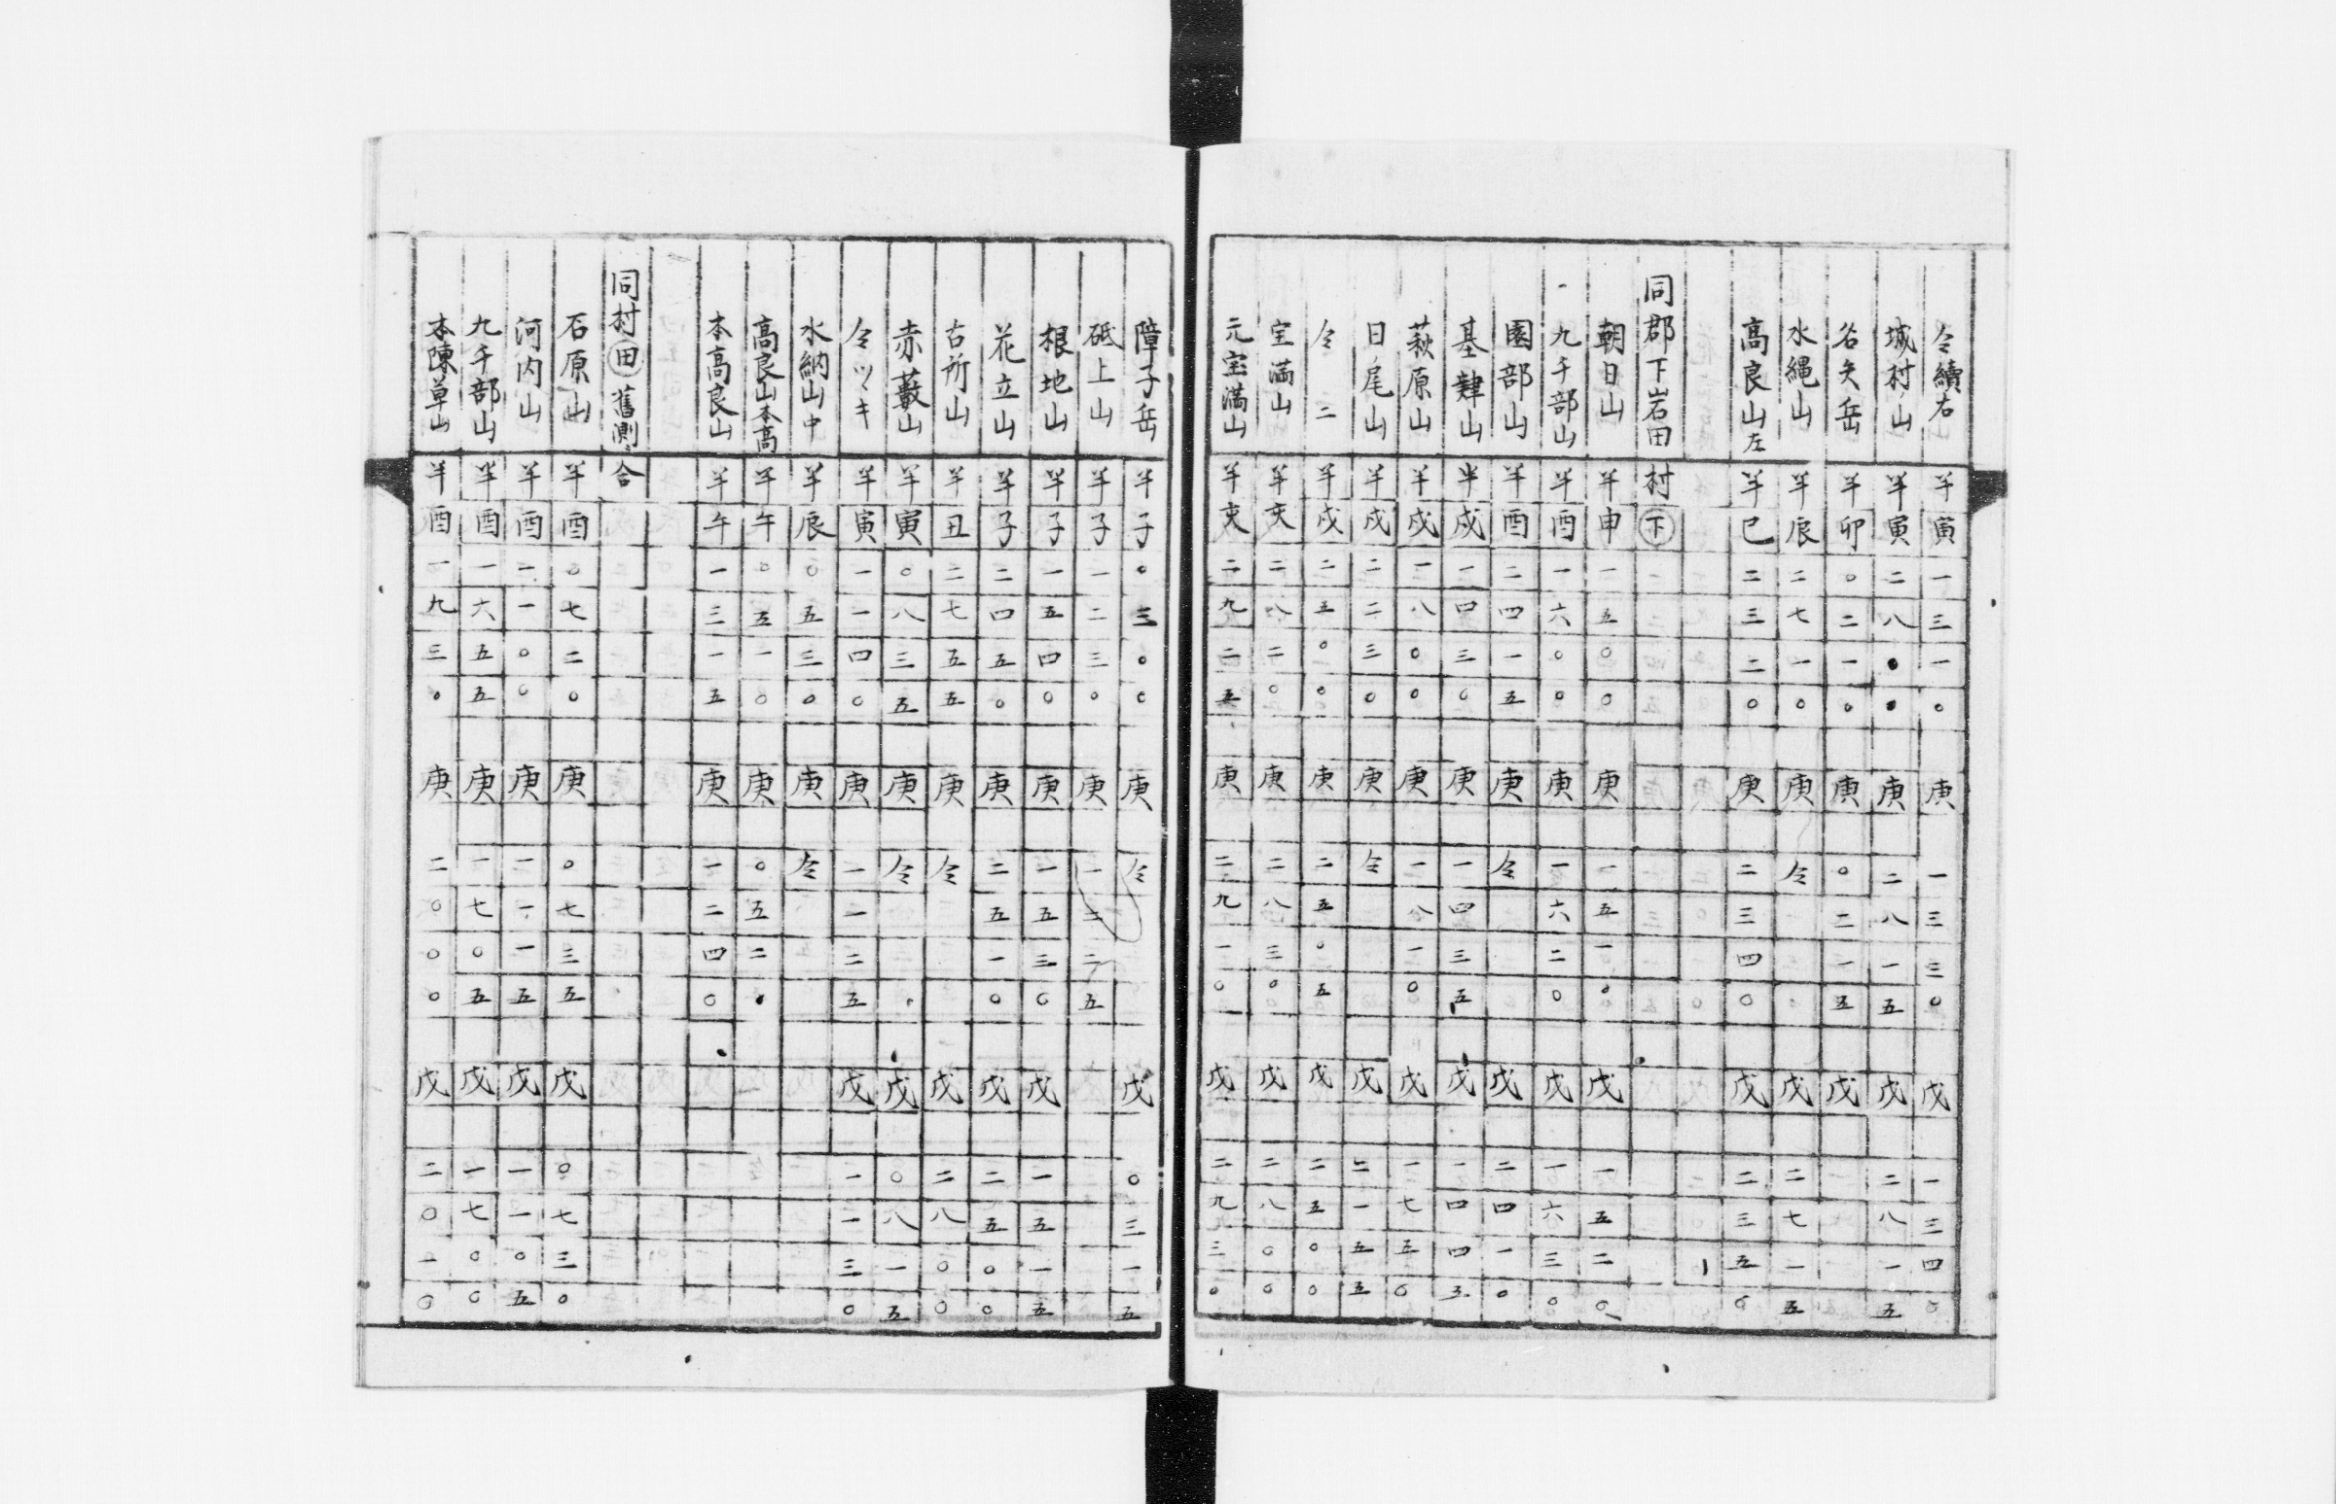 仝續右 半寅 一三一〇 庚 一三三〇 戊 一三四〇
城村山 半寅 二八〇〇 庚 二八一五 戊 二八一五
名矢岳 半卯 〇二一〇 庚 〇二一五 戊
水縄山 半辰 二七一〇 庚 仝 戊 二七一五
髙良山左 半巳 二三二〇 庚 二三四〇 戊 二三五〇
同郡下岩田村下
朝日山 半申 一五〇〇 庚 一五一〇 戊 一五二〇
九千部山 半酉 一六〇〇 庚 一六二〇 戊 一六三〇
園部山 半酉 二四一五 庚 仝 戊 二四一〇
基肄山 半戌 一四三〇 庚 一四三五 戊 一四四五
萩原山 半戌 一八〇〇 庚 一八一〇 戊 一七五〇
日尾山 半戌 二二三〇 庚 仝 戊 二一五五
仝二 半戌 二五〇〇 庚 二五〇五 戊 二五〇〇
宝満山 半亥 二八二〇 庚 二八三〇 戊 二八〇〇
元宝満山 半亥 二九二五 庚 二九一〇 戊 二九三〇
障子岳 半子 〇三〇〇 庚 仝 戊 〇三一五
砥上山 半子 一二三〇 庚 一二二五
根地山 半子 一五四〇 庚 一五三〇 戊 一五一五
花立山 半子 二四五〇 庚 二五一〇 戊 二五〇〇
古所山 半丑 二七五五 庚 仝 戊 二八〇〇
赤藪山 半寅 〇八三五 庚 仝 戊 〇八一五
仝ツヽキ 半寅 一一四〇 庚 一一二五 戊 一一三〇
水納山中 半辰 〇五三〇 庚 仝
髙良山本髙 半午 〇五一〇 庚 〇五二〇
本髙良山 半午 一三一五 庚 一二四〇
同村田舊測合
石原山 半酉 〇七二〇 庚 〇七三五 戊 〇七三〇
河内山 半酉 一一〇〇 庚 一一一五 戊 一一〇五
九千部山 半酉 一六五五 庚 一七〇五 戊 一七〇〇
本陳草山 半酉 一九三〇 庚 二〇〇〇 戊 二〇一〇